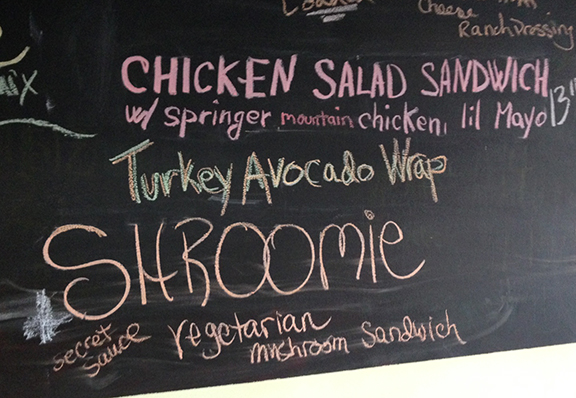 Cheese
Ranch Dressing
CHICKEN SALAD SANDWICH
w/ springer mountain chicken, lil Mayo 13"
Turkey Avocado Wrap
SHROOMIE
+ secret sauce
vegetarian
mushroom Sandwich